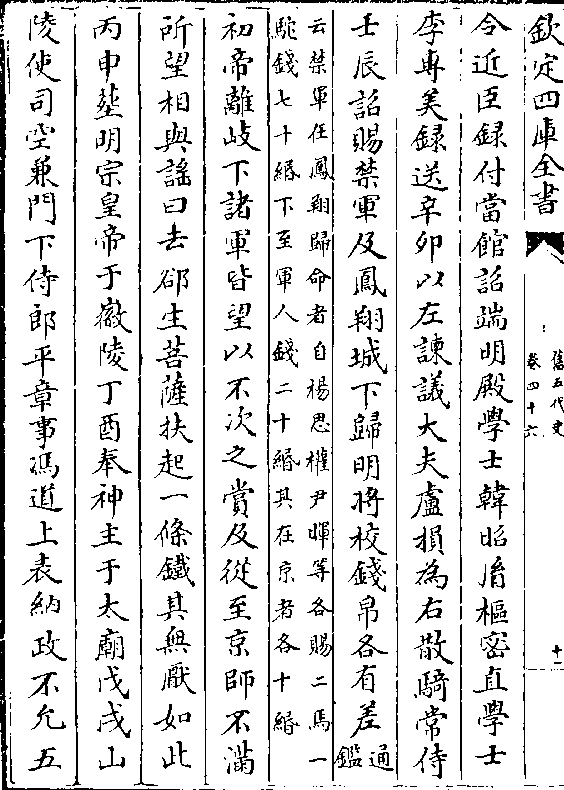 欽定四庫全書
舊五代史
卷四十六
十二
令近臣録付當館詔端明殿學士韓昭𦙍樞密直學士
李專美録送辛卯以左諫議大夫盧損為右散騎常侍
壬辰詔賜禁軍及鳳翔城下歸明將校錢帛各有差通鑑
云禁軍在鳳翔歸命者自楊思權尹暉等各賜二馬一
駝錢七十緡下至軍人錢二十緡其在京者各十緡
初帝離岐下諸軍皆望以不次之賞及從至京師不滿
所望相與謡曰去郤生菩薩扶起一條鐵其無厭如此
丙申塟明宗皇帝于徽陵丁酉奉神主于太廟戊戌山
陵使司空兼門下侍郎平章事馮道上表納政不允五